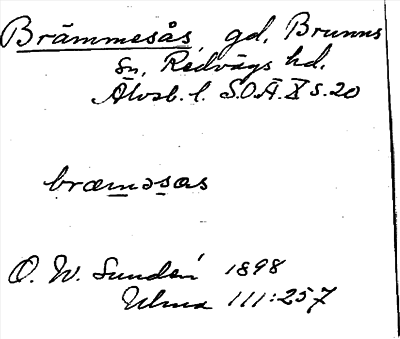 Brämmesås gd, Brunns
sn, Redvägs hd,
Älvsb. l. S.O.Ä. X s. 20
bræməsas
O. W. Sundén 1898
Ulma 111:257